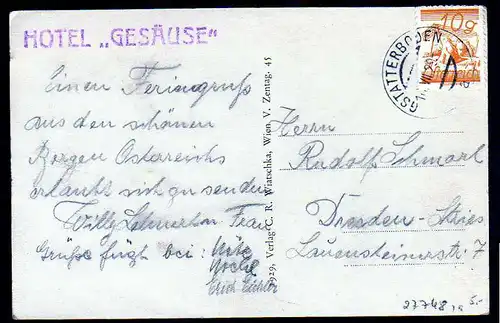 HOTEL „GESÄUSE“
Einen Feriengruß
aus den schönen
Bergen Österreichs
erlaubt sich zu senden
Willy u. Frau
Grüße fügt bei:
Erich
1929, Verlag C. R. Wiatschka, Wien V. Zentag. 45
GSTATTERBODEN
10g
Österreich
Herrn
Rudolf Schmorl
Dresden-Stries
Lauensteinerstr. 7
27748
5.-